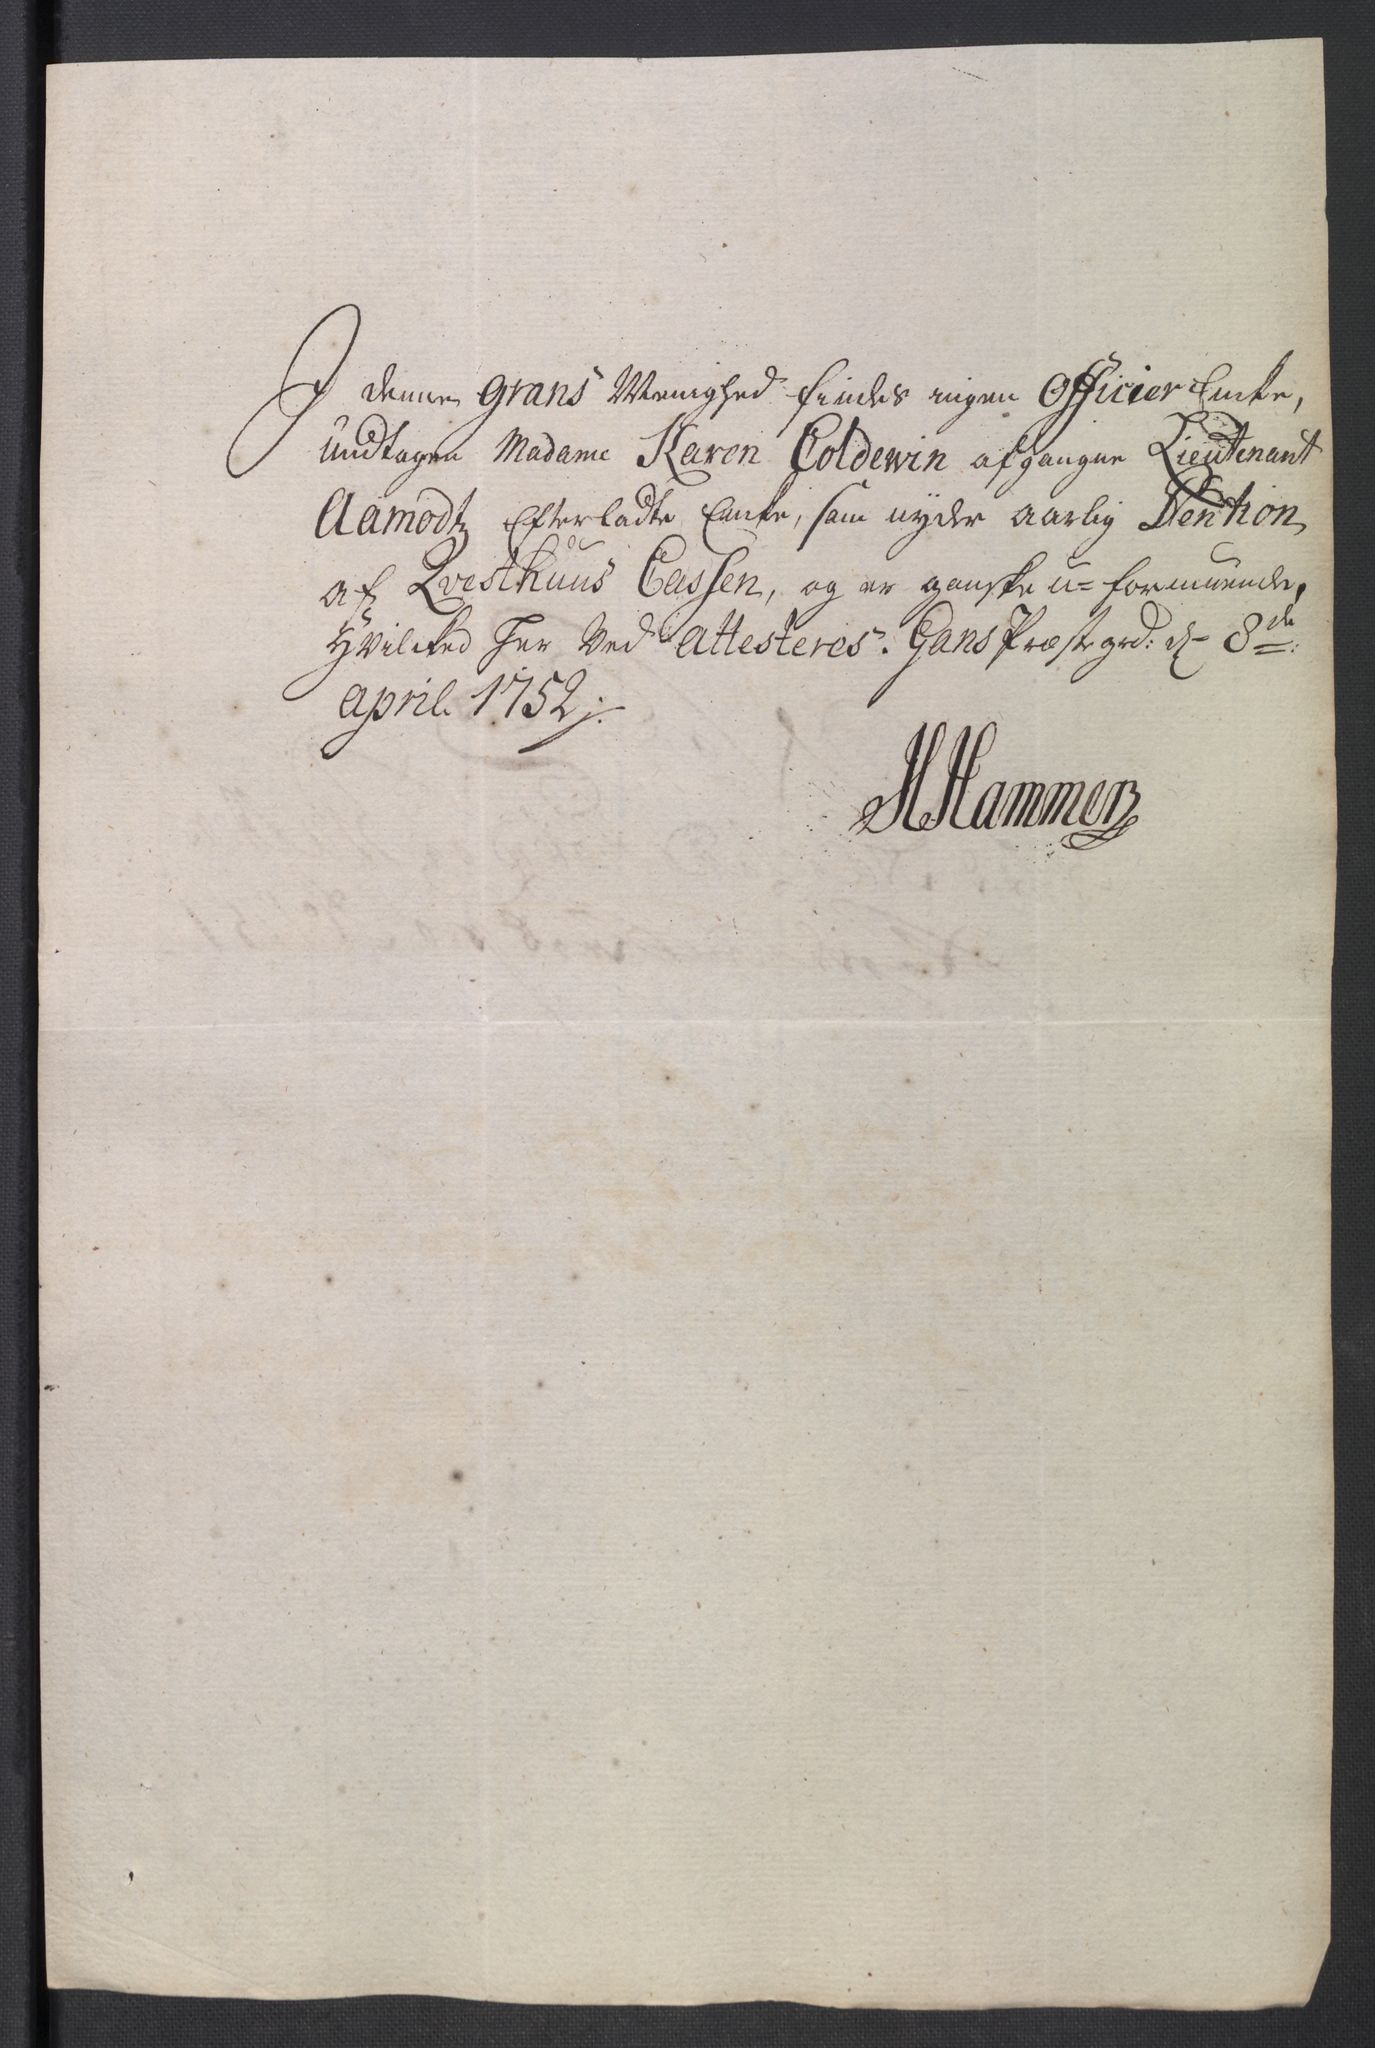 I denne Grans Menighed findes ingen Officier Encke,
undtagen Madame Karen Coldewin afgangne Lieutenant
Aamodtz Efterladte Encke, som nyder aarlig Pention
af Qvesthuus Cassen, og er ganske u=formuende,
Hvilcked Her Ved attesteres. Grans Præstegrd: d. 8de:
april 1752.
H Hammer